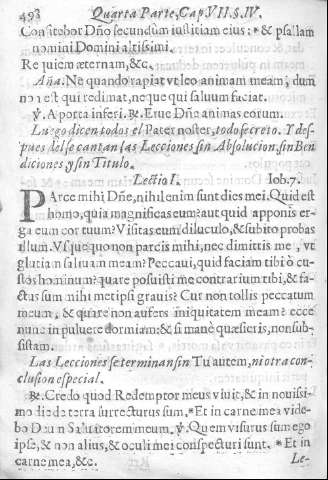 493 Quarta Parte, Cap. VII. §. IV.
Confitebor Dño secundùm iustitiam eius: * & psallam
nomini Domini altissimi.
Requiem æternam, &c.
Aña. Ne quando rapiat vt leo animam meam, dum
non est qui redimat, neque qui saluum faciat.
℣. A porta inferi. ℟. Erue Dñe animas eorum.
Luego dicen todos el Pater noster, todo secreto. Y des-
pues del se cantan las Lecciones sin Absolucion, sin Ben
diciones, y sin Titulo.
Lectio I. Iob. 7.
PArce mihi Dñe, nihil enim sunt dies mei. Quid est
homo, quia magnificas eum? aut quid apponis er-
ga eum cor tuum? Visitas eum diluculo, & subito probas
illum. Vsquequo non parcis mihi, nec dimittis me, vt
glutiam saliuam meam? Peccaui, quid faciam tibi ò cu-
stos hominum? quare posuisti me contrarium tibi, & fa-
ctus sum mihi metipsi grauis? Cur non tollis peccatum
meum, & quare non aufers iniquitatem meam? ecce
nunc in puluere dormiam: & si manè quæsieris, non sub-
sistam.
Las Lecciones se terminan sin Tu autem, ni otra con-
clusion especial.
℟. Credo quod Redemptor meus viuit, & in nouissi-
mo die de terra surrecturus sum, * Et in carne mea vide-
bo Deum Saluatorem meum. ℣. Quem visurus sum ego
ipse, & non alius, & oculi mei conspecturi sunt. * Et in
carne mea, &c. Le-